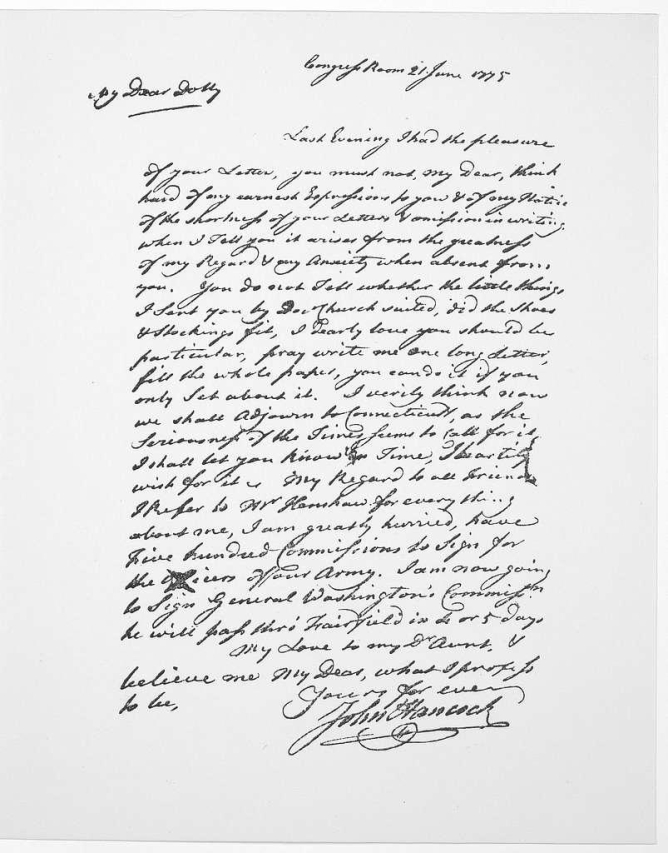 Congress Room 21 June 1775
My Dear Dolly
Last Evening I had the pleasure
of your Letter, you must not, my Dear, think
hard of my earnest Expressions to you & of my Notice
of the shortness of your Letters & omission in writing,
when I Tell you it arises from the greatness
of my Regard & my Anxiety when absent from
you. You do not Tell whether the little things
I sent you by Doc Church suited, did the Shoes
& Stockings fit, I Dearly love you should be
particular, pray write me one long Letter,
fill the whole paper, you can do it if you
only Set about it. I verily think now
we shall Adjourn to Connecticut, as the
Seriousness of the Times seems to call for it,
I shall let you know in Time, I heartily
wish for it. My Regard to all Friends
I Refer to Mr Henshaw for every thing
about me, I am greatly hurried, have
Five hundred Commissions to Sign for
the Officers of our Army. I am now going
to Sign General Washington's Commissn
he will pass thro' Fairfield in 4 or 5 days
My Love to my Dr Aunt, &
believe me My Dear, what I profess
to be,
Yours for ever
John Hancock